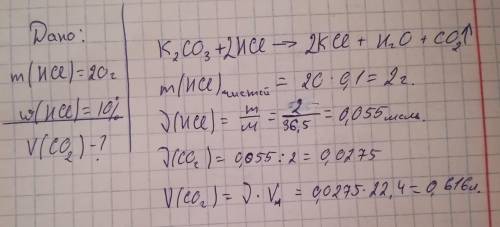 Дано:
m(HCl)=20г
w(HCl)=10%
V(CO₂)-?
K₂CO₃+2HCl→2KCl+H₂O+CO₂↑
m(HCl)чистой=20·0,1=2г.
ν(HCl)=m/M=2/36,5=0,055моль.
ν(CO₂)=0,055:2=0,0275
V(CO₂)=ν·Vм=0,0275·22,4=0,616л.